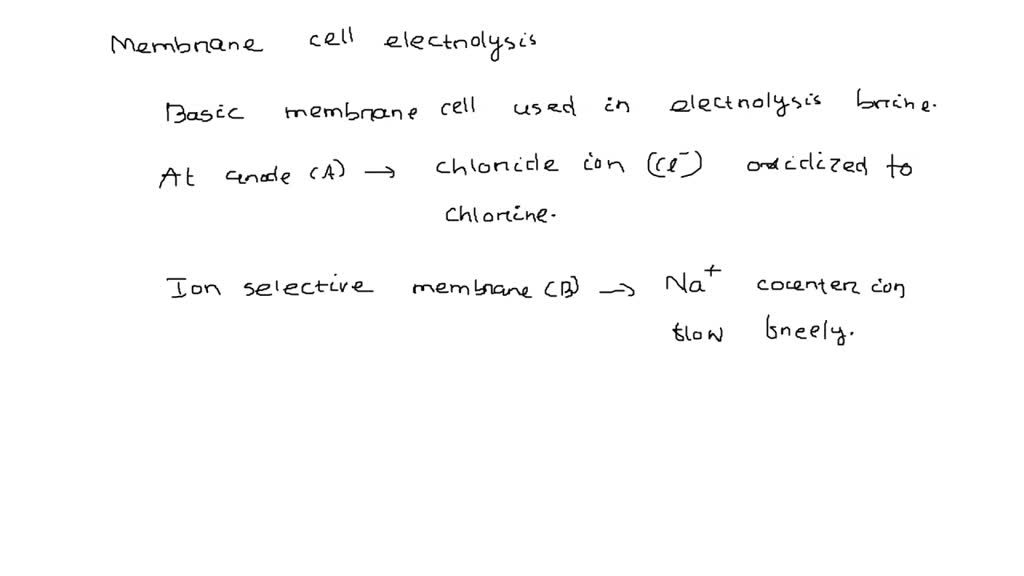 Membrane cell electrolysis
Basic membrane cell used in electrolysis brine.
At anode (A) → chloride ion (Cl⁻) oxidized to
chlorine.
Ion selective membrane (B) → Na⁺ counter ion
flow freely.